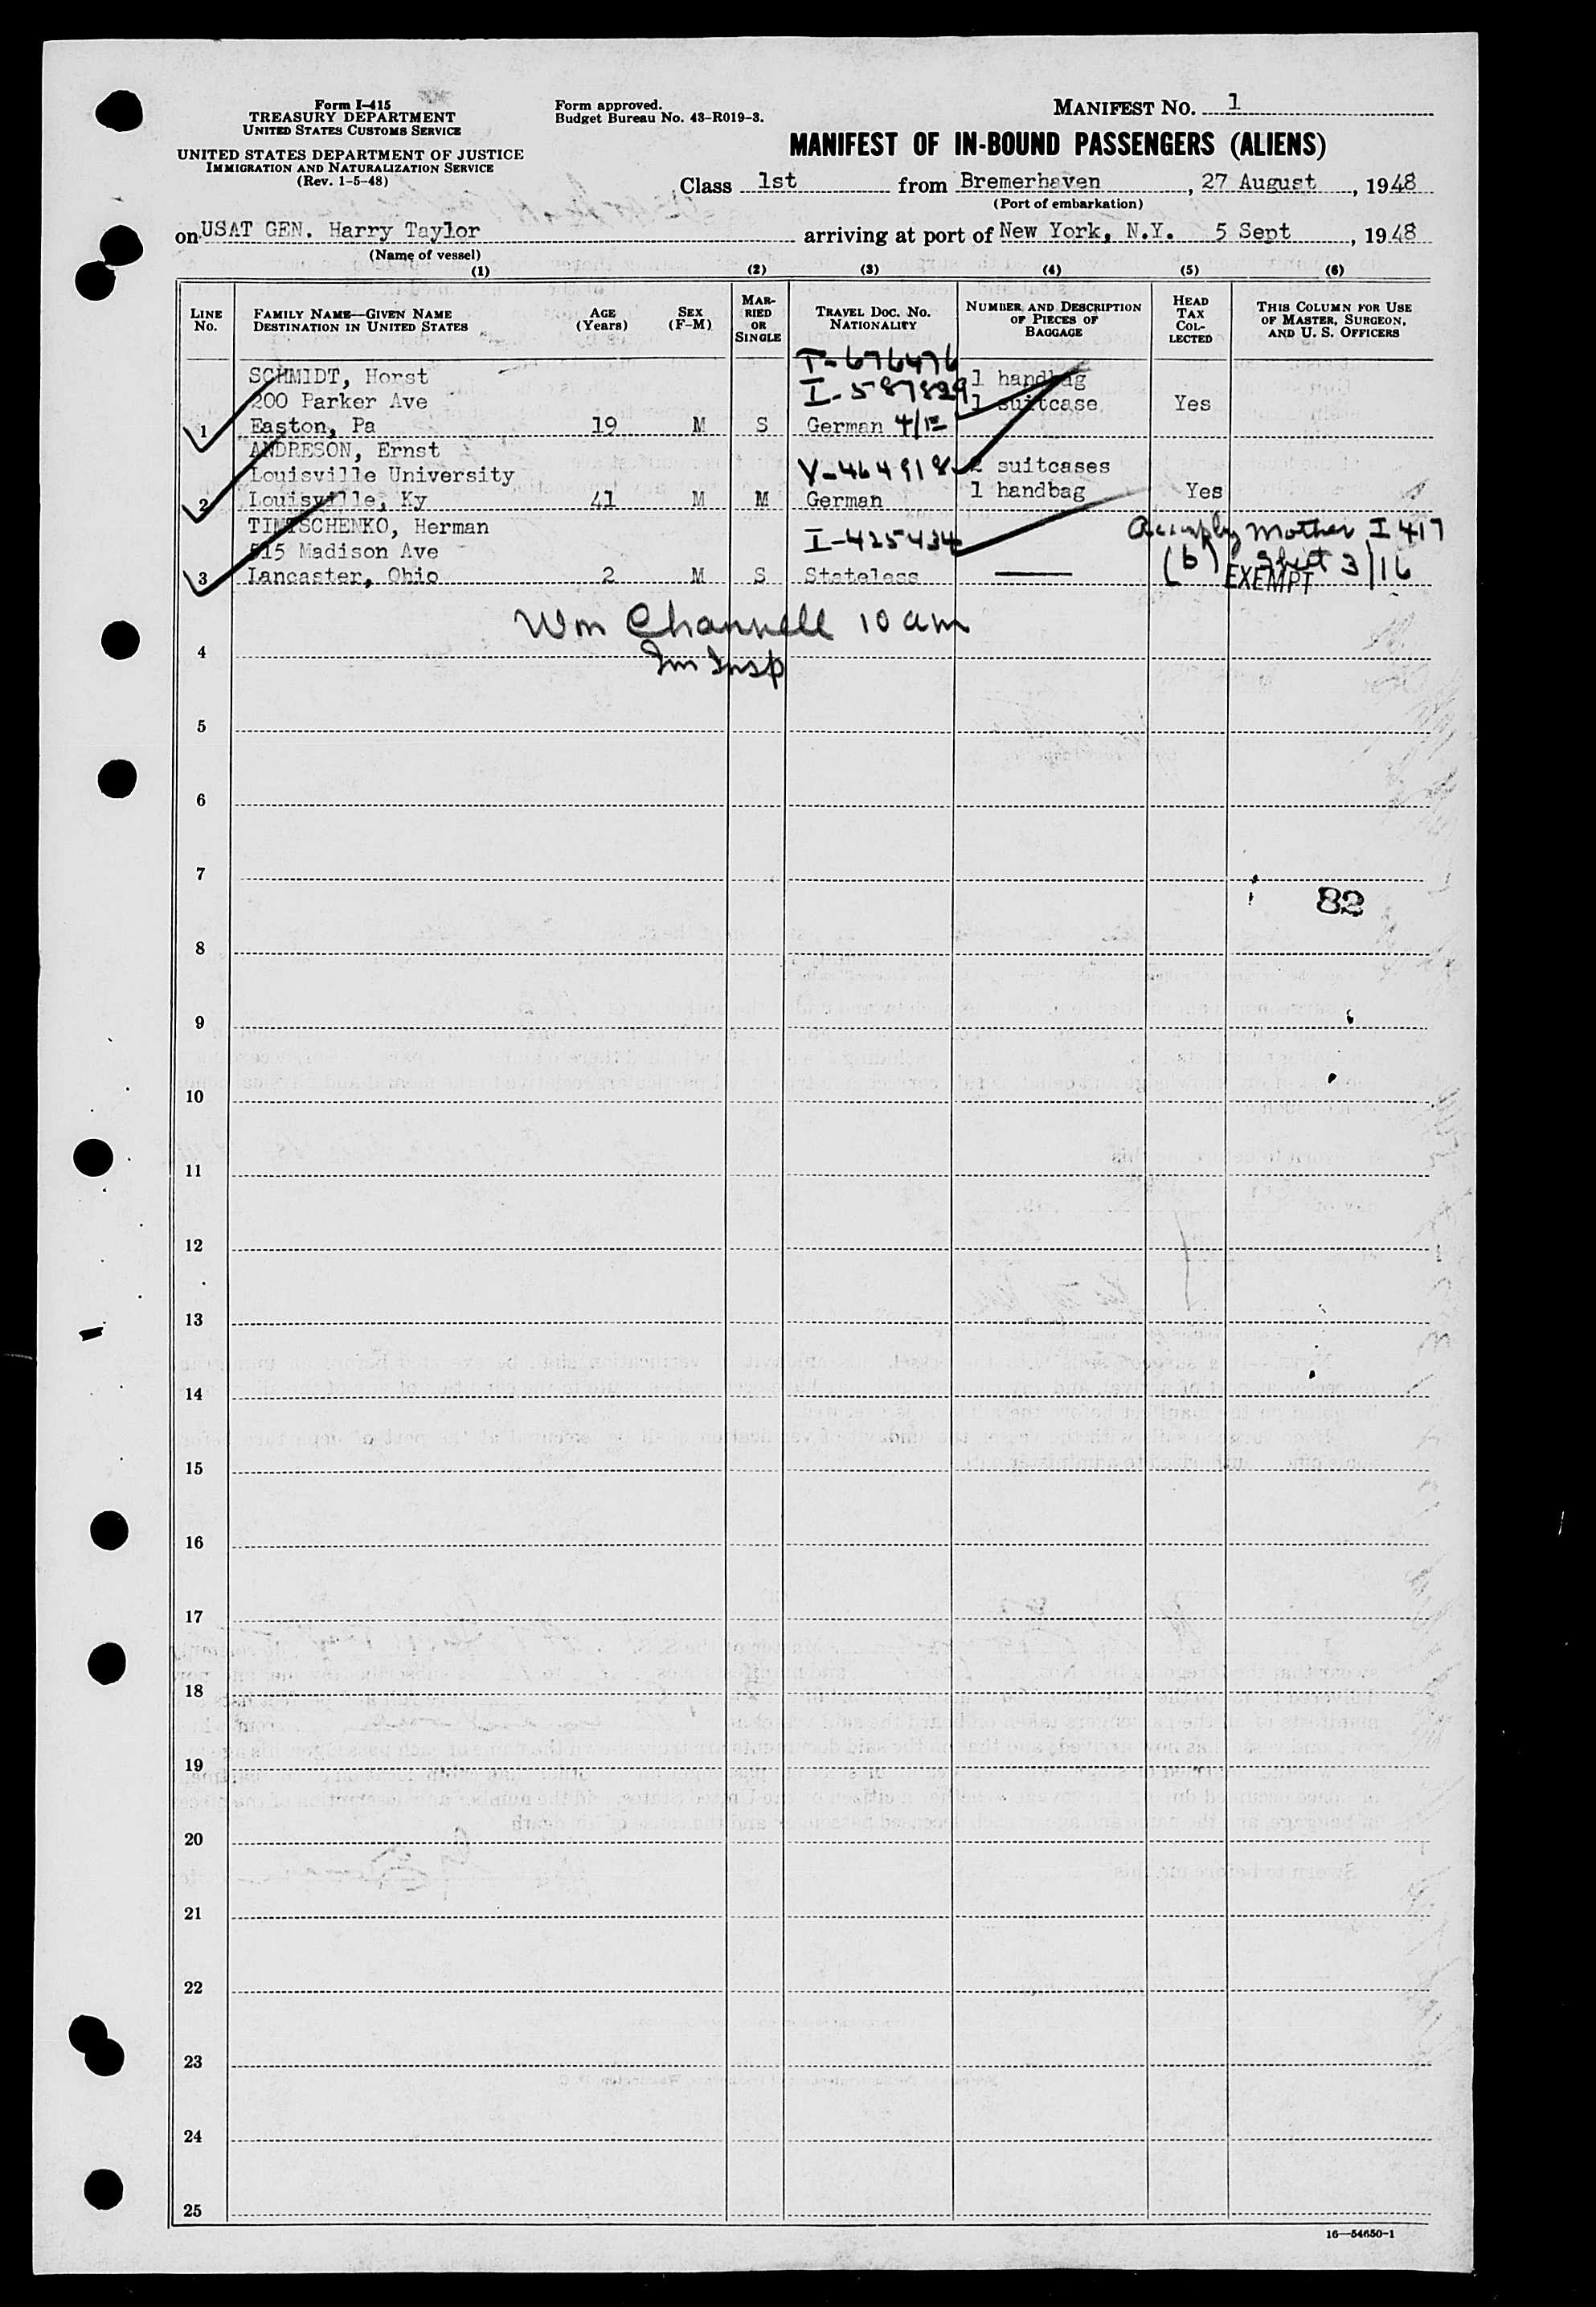 Form I-415
TREASURY DEPARTMENT
UNITED STATES CUSTOMS SERVICE
UNITED STATES DEPARTMENT OF JUSTICE
IMMIGRATION AND NATURALIZATION SERVICE
(Rev. 1-5-48)
Form approved.
Budget Bureau No. 43-R019-3.
MANIFEST NO. 1
MANIFEST OF IN-BOUND PASSENGERS (ALIENS)
Class 1st from Bremerhaven, 27 August, 1948
(Port of embarkation)
on USAT GEN. Harry Taylor arriving at port of New York, N.Y. 5 Sept, 1948
(Name of vessel)
(1) (2) (3) (4) (5) (6)
LINE No. FAMILY NAME—GIVEN NAME DESTINATION IN UNITED STATES AGE (Years) SEX (F-M) MARRIED OR SINGLE TRAVEL DOC. NO. NATIONALITY NUMBER AND DESCRIPTION OF PIECES OF BAGGAGE HEAD TAX COLLECTED THIS COLUMN FOR USE OF MASTER, SURGEON, AND U. S. OFFICERS
T-676476
SCHMIDT, Horst I-587829 1 handbag
200 Parker Ave 1 suitcase Yes
1 Easton, Pa 19 M S German
ANDRESON, Ernst
Louisville University V-464918 2 suitcases
2 Louisville, Ky 41 M M German 1 handbag Yes
TIMTSCHENKO, Herman Mother I 417
515 Madison Ave I-425434
3 Lancaster, Ohio 2 M S Stateless (b) Sheet 3/16
EXEMPT
Wm Channell 10 am
4 Im Insp
5
6
7
82
8
9
10
11
12
13
14
15
16
17
18
19
20
21
22
23
24
25
16—54650-1